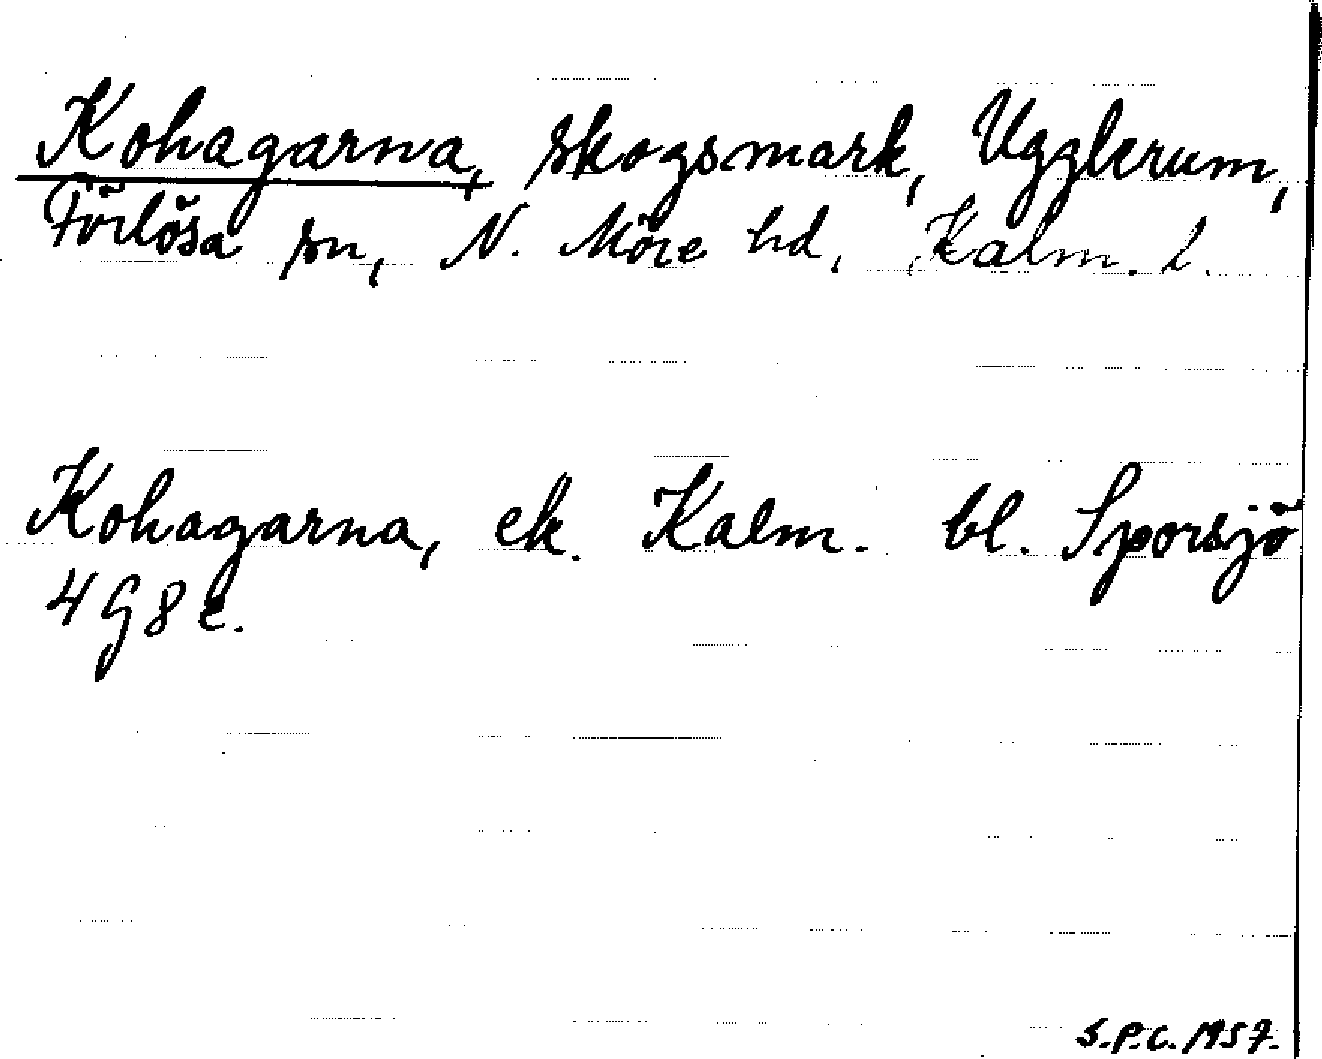 Kohagarna, skogsmark, Ugglerum,
Förlösa sn, N. Möre hd, Kalm. l.
Kohagarna, ek. Kalm. bl. Sporsjö
4 G 8 e.
S.P.C. 1957.